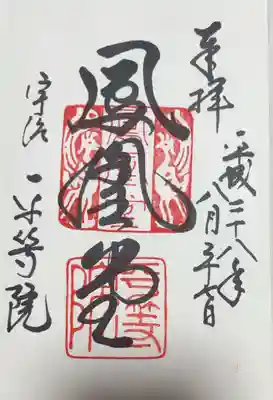 奉拝
平成二十八年
八月二十六日
鳳凰堂
宇治
平等院